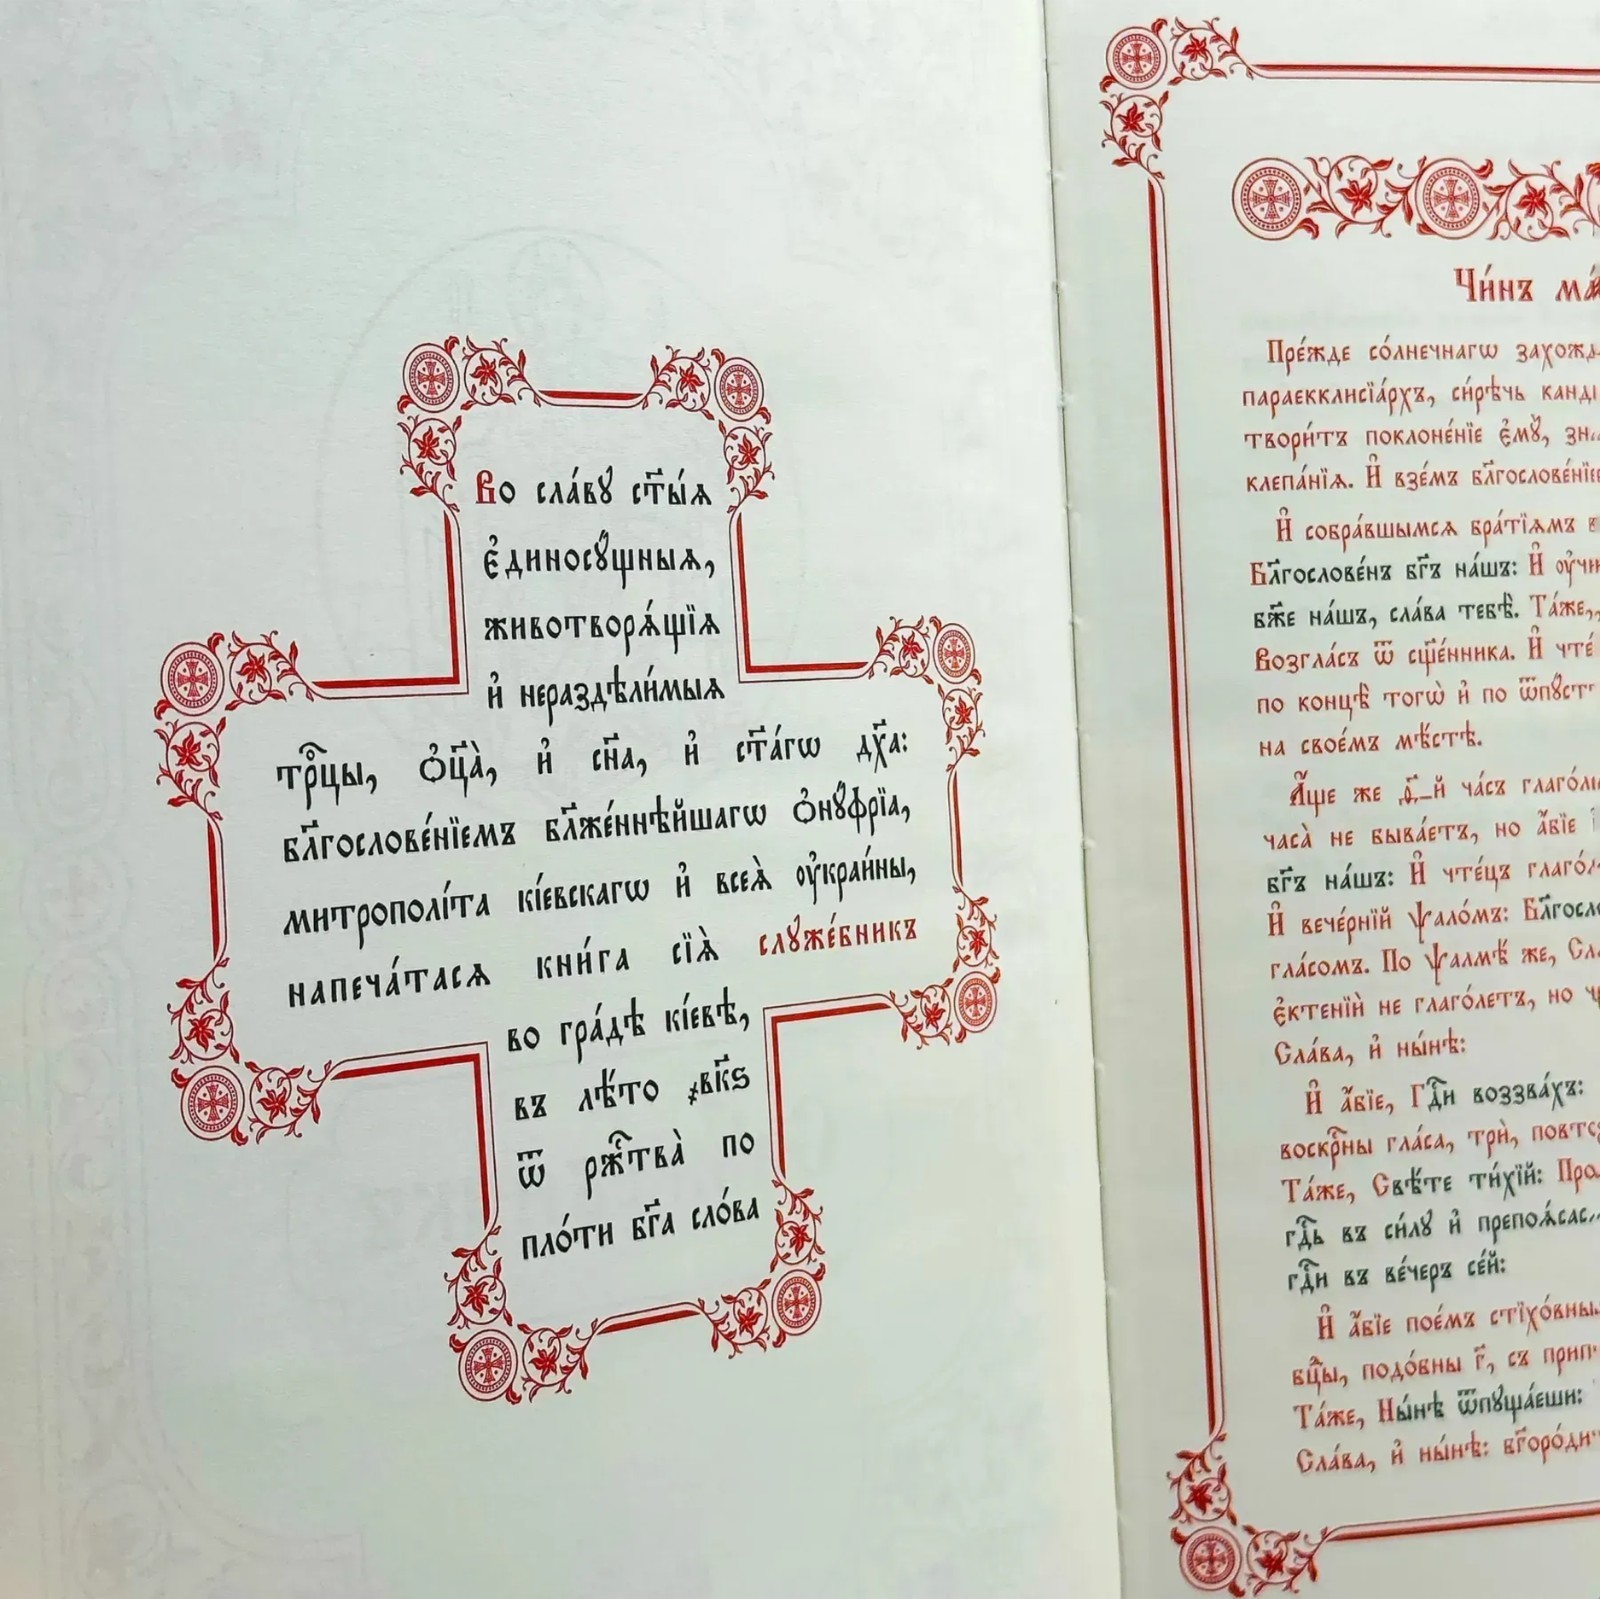 Во сла́вꙋ ст҃ы́ѧ
є҆диносꙋ́щныѧ,
животворѧ́щїѧ
и҆ нераздѣли́мыѧ
трⷪ҇цы, ѻ҆ц҃а̀, и҆ сн҃а, и҆ ст҃а́гѡ дх҃а:
бл҃гослове́нїемъ бл҃же́ннѣйшагѡ ѻ҆нꙋ́фрїа,
митрополі́та кі́евскагѡ и҆ всеѧ̀ ᲂу҆краи́ны,
напеча́тасѧ кни́га сїѧ̀ слꙋже́бникъ
во гра́дѣ кі́евѣ,
въ лѣ́то ҂вк҃ѕ
ѿ ржⷭ҇тва̀ по
пло́ти бг҃а сло́ва
Чи́нъ
Пре́жде со́лнечнагѡ
параекклисїа́рхъ, си́рѣчь
твори́тъ поклоне́нїе є҆мꙋ̀,
клепа́нїѧ. И҆ взе́мъ
И҆ собра́вшымсѧ бра́тїѧмъ
Бл҃гослове́нъ бг҃ъ на́шъ: И҆
бж҃е на́шъ, сла́ва тебѣ̀. Та́же,
Возгла́съ ѿ сщ҃е́нника. И҆
по концѣ̀ тогѡ̀ и҆ по
на свое́мъ мѣ́стѣ.
А҆́ще же д҃_й ча́съ
часа̀ не быва́етъ, но а҆́бїе
бг҃ъ на́шъ: И҆ чте́цъ
И҆ вече́рнїй ѱало́мъ:
гла́сомъ. По ѱалмѣ́ же,
є҆ктенїи́ не глаго́летъ, но
Сла́ва, и҆ ны́нѣ:
И҆ а҆́бїе, Гдⷭ҇и воззва́хъ:
воскрⷭ҇ны гла́са, трѝ,
Та́же, Свѣ́те ти́хїй:
гдⷭ҇ь въ си́лꙋ и҆
гдⷭ҇и въ ве́черъ се́й:
И҆ а҆́бїе пое́мъ
бцⷣы, подо́бны г҃, съ
Та́же, Ны́нѣ ѿпꙋща́еши:
Сла́ва, и҆ ны́нѣ: